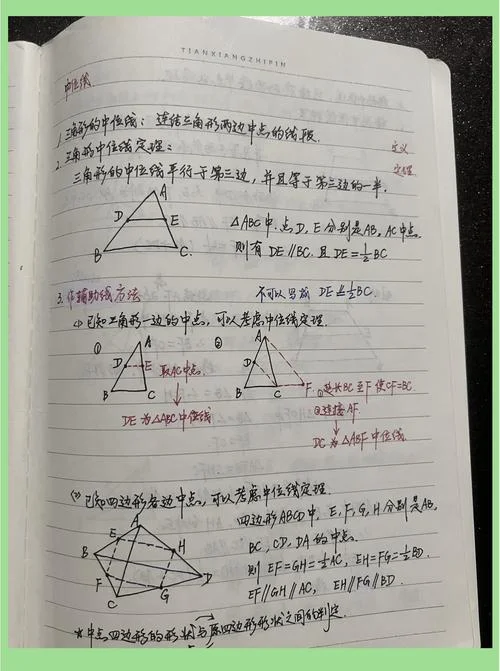 TIANXIANGZHIPIN
中位线
1. 三角形的中位线：连结三角形两边中点的线段.
定义
2. 三角形中位线定理：
定理
三角形的中位线平行于第三边，并且等于第三边的一半.
A
D E
B C
△ABC中.点D、E分别是AB、AC中点
则有 DE∥BC. 且 DE=½BC
3. 作辅助线方法
不可以写成 DE⫽½BC.
(1) 已知三角形一边的中点，可以考虑中位线定理.
① A D E B C
取AC中点.
DE为△ABC中位线
② A D B C F
①延长BC至F使CF=BC.
②连接AF.
DC为△ABF中位线
(2) 已知四边形各边中点，可以考虑中位线定理.
A E B H F D C G
四边形ABCD中，E、F、G、H分别是AB、
BC、CD、DA的中点.
则 EF=GH=½AC, EH=FG=½BD.
EF∥GH∥AC, EH∥FG∥BD.
*中点四边形的形状与原四边形形状之间的判定.